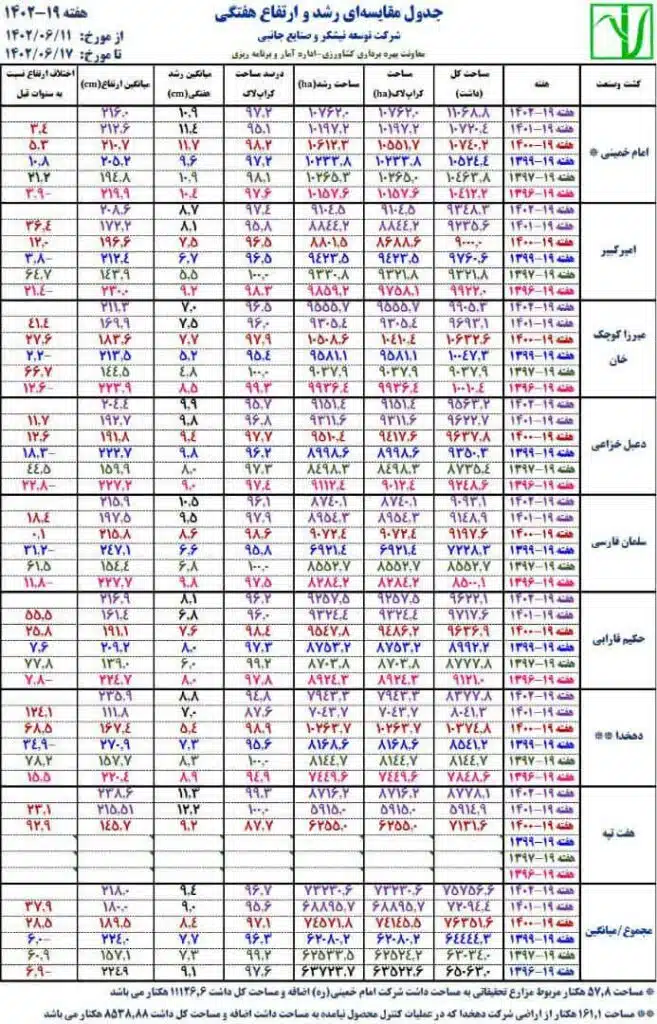 جدول مقایسه‌ای رشد و ارتفاع هفتگی
شرکت توسعه نیشکر و صنایع جانبی
معاونت بهره برداری کشاورزی-اداره آمار و برنامه ریزی
هفته ۱۹-۱۴۰۲
از مورخ: ۱۴۰۲/۰۶/۱۱
تا مورخ: ۱۴۰۲/۰۶/۱۷
کشت وصنعت هفته مساحت کل (داشت) مساحت کراپ‌لاک(ha) مساحت رشد(ha) درصد مساحت کراپ‌لاک میانگین رشد هفتگی(cm) میانگین ارتفاع(cm) اختلاف ارتفاع نسبت به سنوات قبل
امام خمینی *
هفته ۱۹-۱۴۰۲ ۱۱۰۶۸.۸ ۱۰۷۶۲.۰ ۱۰۷۶۲.۰ ۹۷.۲ ۱۰.۹ ۲۱۶.۰
هفته ۱۹-۱۴۰۱ ۱۰۷۲۰.۴ ۱۰۱۹۷.۲ ۱۰۱۹۷.۲ ۹۵.۱ ۱۱.۴ ۲۱۲.۶ ۳.۴
هفته ۱۹-۱۴۰۰ ۱۰۷۴۰.۲ ۱۰۵۵۱.۷ ۱۰۶۱۲.۳ ۹۸.۲ ۱۱.۷ ۲۱۰.۷ ۵.۳
هفته ۱۹-۱۳۹۹ ۱۰۵۲۴.۴ ۱۰۲۳۳.۸ ۱۰۲۳۳.۸ ۹۷.۲ ۹.۶ ۲۰۵.۲ ۱۰.۸
هفته ۱۹-۱۳۹۷ ۱۰۴۶۳.۸ ۱۰۲۶۵.۰ ۱۰۲۶۵.۳ ۹۸.۱ ۱۰.۹ ۱۹۴.۸ ۲۱.۲
هفته ۱۹-۱۳۹۶ ۱۰۴۱۲.۲ ۱۰۱۵۷.۶ ۱۰۱۵۷.۶ ۹۷.۶ ۱۰.۴ ۲۱۹.۹ ۳.۹-
امیرکبیر
هفته ۱۹-۱۴۰۲ ۹۳۴۸.۳ ۹۱۰۴.۵ ۹۱۰۴.۵ ۹۷.۴ ۸.۷ ۲۰۸.۶
هفته ۱۹-۱۴۰۱ ۹۲۳۵.۶ ۸۸۴۴.۲ ۸۸۴۴.۲ ۹۵.۸ ۸.۱ ۱۷۲.۲ ۳۶.۴
هفته ۱۹-۱۴۰۰ ۹۰۰۰.۰ ۸۶۸۸.۶ ۸۸۰۱.۵ ۹۶.۵ ۷.۵ ۱۹۶.۶ ۱۲.۰
هفته ۱۹-۱۳۹۹ ۹۷۶۰.۶ ۹۴۲۳.۵ ۹۴۲۳.۵ ۹۶.۵ ۶.۷ ۲۱۲.۴ ۳.۸-
هفته ۱۹-۱۳۹۷ ۹۳۲۱.۸ ۹۳۲۱.۸ ۹۳۳۰.۸ ۱۰۰.۰ ۵.۵ ۱۴۳.۹ ۶۴.۷
هفته ۱۹-۱۳۹۶ ۹۹۲۲.۰ ۹۷۵۸.۱ ۹۸۵۹.۲ ۹۸.۳ ۹.۲ ۲۳۰.۰ ۲۱.۴-
میرزا کوچک خان
هفته ۱۹-۱۴۰۲ ۹۹۰۵.۳ ۹۵۵۵.۷ ۹۵۵۵.۷ ۹۶.۵ ۷.۰ ۲۱۱.۳
هفته ۱۹-۱۴۰۱ ۹۶۹۳.۱ ۹۳۰۵.۴ ۹۳۰۵.۴ ۹۶.۰ ۷.۵ ۱۶۹.۹ ۴۱.۴
هفته ۱۹-۱۴۰۰ ۱۰۶۳۲.۶ ۱۰۴۱۰.۴ ۱۰۵۰۸.۶ ۹۷.۹ ۷.۷ ۱۸۳.۶ ۲۷.۶
هفته ۱۹-۱۳۹۹ ۱۰۰۴۷.۳ ۹۵۸۱.۱ ۹۵۸۱.۱ ۹۵.۴ ۵.۲ ۲۱۳.۵ ۲.۲-
هفته ۱۹-۱۳۹۷ ۹۰۳۷.۹ ۹۰۳۷.۹ ۹۰۳۷.۹ ۱۰۰.۰ ۴.۸ ۱۴۴.۵ ۶۶.۷
هفته ۱۹-۱۳۹۶ ۱۰۰۱۰.۴ ۹۹۳۶.۴ ۹۹۳۶.۴ ۹۹.۳ ۸.۵ ۲۲۳.۹ ۱۲.۶-
دعبل خزاعی
هفته ۱۹-۱۴۰۲ ۹۵۶۳.۲ ۹۱۵۱.۴ ۹۱۵۱.۴ ۹۵.۷ ۹.۹ ۲۰۴.۴
هفته ۱۹-۱۴۰۱ ۹۶۲۲.۷ ۹۳۱۱.۶ ۹۳۱۱.۶ ۹۶.۸ ۹.۸ ۱۹۲.۷ ۱۱.۷
هفته ۱۹-۱۴۰۰ ۹۶۳۷.۸ ۹۴۱۷.۶ ۹۵۱۰.۴ ۹۷.۷ ۹.۴ ۱۹۱.۸ ۱۲.۶
هفته ۱۹-۱۳۹۹ ۹۳۵۰.۳ ۸۹۹۸.۶ ۸۹۹۸.۶ ۹۶.۲ ۹.۸ ۲۲۲.۷ ۱۸.۳-
هفته ۱۹-۱۳۹۷ ۸۷۳۵.۴ ۸۴۹۸.۳ ۸۴۹۸.۳ ۹۷.۳ ۸.۰ ۱۵۹.۹ ۴۴.۵
هفته ۱۹-۱۳۹۶ ۹۲۴۸.۶ ۹۰۱۲.۴ ۹۱۱۲.۴ ۹۷.۴ ۹.۰ ۲۲۷.۲ ۲۲.۸-
سلمان فارسی
هفته ۱۹-۱۴۰۲ ۹۰۹۳.۱ ۸۷۴۰.۱ ۸۷۴۰.۱ ۹۶.۱ ۱۰.۵ ۲۱۵.۹
هفته ۱۹-۱۴۰۱ ۹۱۴۸.۹ ۸۹۵۴.۳ ۸۹۵۴.۳ ۹۷.۹ ۹.۵ ۱۹۷.۵ ۱۸.۴
هفته ۱۹-۱۴۰۰ ۹۱۹۷.۶ ۹۰۷۲.۴ ۹۰۷۲.۴ ۹۸.۶ ۸.۶ ۲۱۵.۸ ۰.۱
هفته ۱۹-۱۳۹۹ ۷۲۲۸.۳ ۶۹۲۱.۴ ۶۹۲۱.۴ ۹۵.۸ ۶.۶ ۲۴۷.۱ ۳۱.۲-
هفته ۱۹-۱۳۹۷ ۸۵۵۲.۷ ۸۵۵۲.۷ ۸۵۵۲.۷ ۱۰۰.۰ ۶.۸ ۱۵۴.۴ ۶۱.۵
هفته ۱۹-۱۳۹۶ ۸۵۰۰.۱ ۸۲۸۴.۲ ۸۲۸۴.۲ ۹۷.۵ ۹.۸ ۲۲۷.۷ ۱۱.۸-
حکیم فارابی
هفته ۱۹-۱۴۰۲ ۹۶۲۲.۱ ۹۲۵۷.۵ ۹۲۵۷.۵ ۹۶.۲ ۸.۱ ۲۱۶.۹
هفته ۱۹-۱۴۰۱ ۹۷۱۷.۶ ۹۳۲۴.۴ ۹۳۲۴.۴ ۹۶.۰ ۶.۸ ۱۶۱.۴ ۵۵.۵
هفته ۱۹-۱۴۰۰ ۹۶۳۶.۹ ۹۴۸۶.۲ ۹۵۴۷.۸ ۹۸.۴ ۷.۶ ۱۹۱.۱ ۲۵.۸
هفته ۱۹-۱۳۹۹ ۸۹۹۲.۲ ۸۷۵۳.۲ ۸۷۵۳.۲ ۹۷.۳ ۸.۰ ۲۰۹.۲ ۷.۶
هفته ۱۹-۱۳۹۷ ۸۷۷۷.۸ ۸۷۰۳.۸ ۸۷۰۳.۸ ۹۹.۲ ۶.۰ ۱۳۹.۰ ۷۷.۸
هفته ۱۹-۱۳۹۶ ۹۱۲۱.۰ ۸۹۲۴.۳ ۸۹۲۴.۳ ۹۷.۸ ۸.۰ ۲۲۴.۷ ۷.۸-
دهخدا **
هفته ۱۹-۱۴۰۲ ۸۳۷۷.۸ ۷۹۴۳.۳ ۷۹۴۳.۳ ۹۴.۸ ۸.۸ ۲۳۵.۹
هفته ۱۹-۱۴۰۱ ۸۰۴۱.۳ ۷۰۴۳.۷ ۷۰۴۳.۷ ۸۷.۶ ۷.۰ ۱۱۱.۸ ۱۲۴.۱
هفته ۱۹-۱۴۰۰ ۱۰۳۷۴.۸ ۱۰۲۶۳.۷ ۱۰۲۶۳.۷ ۹۸.۹ ۵.۴ ۱۶۷.۴ ۶۸.۵
هفته ۱۹-۱۳۹۹ ۸۵۴۱.۲ ۸۱۶۸.۶ ۸۱۶۸.۶ ۹۵.۶ ۷.۳ ۲۷۰.۹ ۳۴.۹-
هفته ۱۹-۱۳۹۷ ۸۱۴۴.۷ ۸۱۴۴.۷ ۸۱۴۴.۷ ۱۰۰.۰ ۸.۳ ۱۵۷.۷ ۷۸.۲
هفته ۱۹-۱۳۹۶ ۷۸۴۸.۶ ۷۴۴۹.۶ ۷۴۴۹.۶ ۹۴.۹ ۸.۹ ۲۲۰.۴ ۱۵.۵
هفت تپه
هفته ۱۹-۱۴۰۲ ۸۷۷۸.۱ ۸۷۱۶.۲ ۸۷۱۶.۲ ۹۹.۳ ۱۱.۳ ۲۳۸.۶
هفته ۱۹-۱۴۰۱ ۵۹۱۴.۹ ۵۹۱۵.۰ ۵۹۱۵.۰ ۱۰۰.۰ ۱۲.۲ ۲۱۵.۵۱ ۲۳.۱
هفته ۱۹-۱۴۰۰ ۷۱۳۱.۶ ۶۲۵۵.۰ ۶۲۵۵.۰ ۸۷.۷ ۹.۲ ۱۴۵.۷ ۹۲.۹
هفته ۱۹-۱۳۹۹
هفته ۱۹-۱۳۹۷
هفته ۱۹-۱۳۹۶
مجموع/میانگین
هفته ۱۹-۱۴۰۲ ۷۵۷۵۶.۶ ۷۳۲۳۰.۶ ۷۳۲۳۰.۶ ۹۶.۷ ۹.۴ ۲۱۸.۰
هفته ۱۹-۱۴۰۱ ۷۲۰۹۴.۴ ۶۸۸۹۵.۷ ۶۸۸۹۵.۷ ۹۵.۶ ۹.۰ ۱۸۰.۰ ۳۷.۹
هفته ۱۹-۱۴۰۰ ۷۶۳۵۱.۶ ۷۴۱۴۵.۵ ۷۴۵۷۱.۸ ۹۷.۱ ۸.۴ ۱۸۹.۵ ۲۸.۵
هفته ۱۹-۱۳۹۹ ۶۴۴۴۴.۳ ۶۲۰۸۰.۲ ۶۲۰۸۰.۲ ۹۶.۳ ۷.۷ ۲۲۴.۰ ۶.۰-
هفته ۱۹-۱۳۹۷ ۶۳۰۳۴.۰ ۶۲۵۲۴.۲ ۶۲۵۳۳.۵ ۹۹.۲ ۷.۳ ۱۵۷.۱ ۶۰.۹
هفته ۱۹-۱۳۹۶ ۶۵۰۶۳.۰ ۶۳۵۲۲.۶ ۶۳۷۲۳.۷ ۹۷.۶ ۹.۱ ۲۲۴.۹ ۶.۹-
* مساحت ۵۷.۸ هکتار مربوط مزارع تحقیقاتی به مساحت داشت شرکت امام خمینی(ره) اضافه و مساحت کل داشت ۱۱۱۲۶.۶ هکتار می باشد
** مساحت ۱۶۱.۱ هکتار از اراضی شرکت دهخدا که در عملیات کنترل محصول نیامده به مساحت داشت اضافه و مساحت کل داشت ۸۵۳۸.۸۸ هکتار می باشد